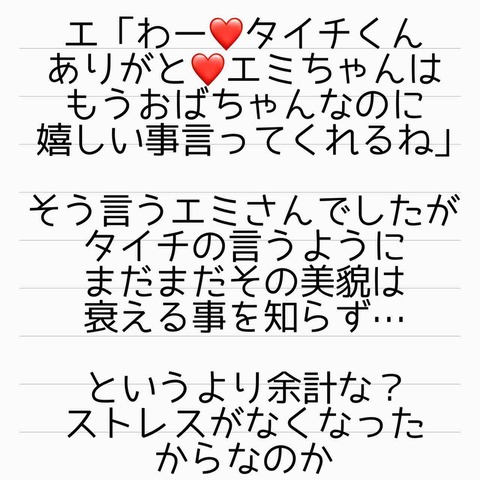 エ「わー❤️タイチくん
ありがと❤️エミちゃんは
もうおばちゃんなのに
嬉しい事言ってくれるね」
そう言うエミさんでしたが
タイチの言うように
まだまだその美貌は
衰える事を知らず…
というより余計な?
ストレスがなくなった
からなのか